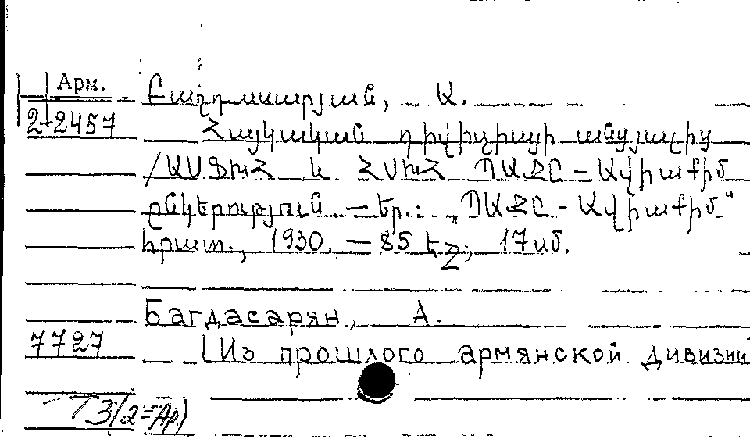 Арм.
Բաղդասարյան, Ա.
2-2457
Հայկական դիվիզիայի անցյալից
/ԱՍՖԽՀ և ՀՍԽՀ ՊԱՇԸ - Ավիաքիմ
ընկերություն. — Եր.: „ՊԱՇԸ - Ավիաքիմ“
հրատ., 1930. — 85 էջ; 17 սմ.
Багдасарян, А.
7727
(Из прошлого армянской дивизии
Т 3(2=Ар)